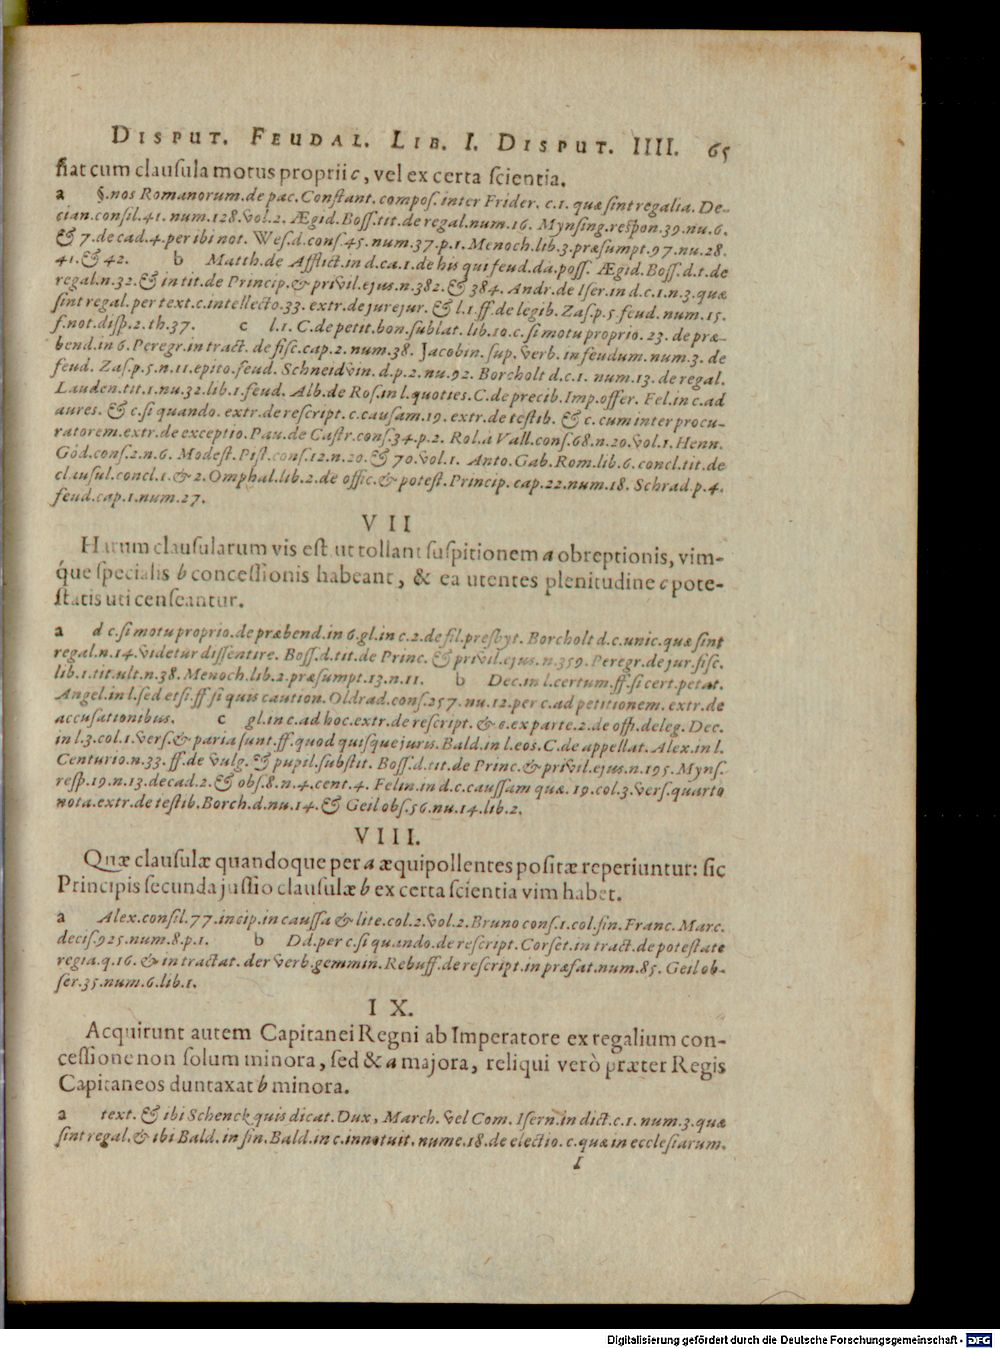 DISPUT. FEUDAL. LIB. I. DISPUT. IIII. 65
fiat cum clausula motus proprii c, vel ex certa scientia.
a §. nos Romanorum. de pac. Constant. compos. inter Frider. c.1. quæ sint regalia. De-
cian. consil. 41. num. 128. vol. 2. Ægid. Boss. tit. de regal. num. 16. Mynsing. respon. 39. nu. 6.
& 7. decad. 4. per ibi not. Wes. d. cons. 45. num. 37. p. 1. Menoch. lib. 3. præsumpt. 97. nu. 28.
41. & 42. b Matth. de Afflict. in d. ca. 1. de his qui feud. da. poss. Ægid. Boss. d. t. de
regal. n. 32. & in tit. de Princip. & privil. ejus. n. 382. & 384. Andr. de Iser. in d. c. 1. n. 3. quæ
sint regal. per text. c. intellecto. 33. extr. de jurejur. & l. 1. ff. de legib. Zas. p. 5. feud. num. 15.
f. not. disp. 2. th. 37. c l. 1. C. de petit. bon. sublat. lib. 10. c. si motu proprio. 23. de præ-
bend. in 6. Peregr. in tract. de fisc. cap. 2. num. 38. Jacobin. sup. verb. in feudum. num. 3. de
feud. Zas. p. 5. n. 11. epito. feud. Schneidvin. d. p. 2. nu. 92. Borcholt d. c. 1. num. 13. de regal.
Lauden. tit. 1. nu. 32. lib. 1. feud. Alb. de Ros. in l. quoties. C. de precib. Imp. offer. Fel. in c. ad
aures. & c. si quando. extr. de rescript. c. causam. 19. extr. de testib. & c. cum inter procu-
ratorem. extr. de exceptio. Pau. de Castr. cons. 34. p. 2. Rol. à Vall. cons. 68. n. 20. vol. 1. Henn.
Göd. cons. 2. n. 6. Modest. Pist. cons. 12. n. 20. & 70. vol. 1. Anto. Gab. Rom. lib. 6. concl. tit. de
clausul. concl. 1. & 2. Omphal. lib. 2. de offic. & potest. Princip. cap. 22. num. 18. Schrad. p. 4.
feud. cap. 1. num. 27.
VII
Harum clausularum vis est ut tollant suspitionem a obreptionis, vim-
que specialis b concessionis habeant, & ea utentes plenitudine c pote-
statis uti censeantur.
a d c. si motu proprio. de præbend. in 6. gl. in c. 2. de fil. presbyt. Borcholt d. c. unic. quæ sint
regal. n. 14. videtur dissentire. Boss. d. tit. de Princ. & privil. ejus. n. 359. Peregr. de jur. fisc.
lib. 1. tit. ult. n. 38. Menoch. lib. 2. præsumpt. 13. n. 11. b Dec. in l. certum. ff. si cert. petat.
Angel. in l. sed etsi. ff si quis caution. Oldrad. cons. 257. nu. 12. per c. ad petitionem. extr. de
accusationibus. c gl. in c. ad hoc. extr. de rescript. & c. ex parte. 2. de offi. deleg. Dec.
in l. 3. col. 1. vers. & paria sunt. ff. quod quisque juris. Bald. in l. eos. C. de appellat. Alex. in l.
Centurio. n. 33. ff. de vulg. & pupil. substit. Boss. d. tit. de Princ. & privil. ejus. n. 195. Myns.
resp. 19. n. 13. decad. 2. & obs. 8. n. 4. cent. 4. Felin. in d. c. caussam quæ. 19. col. 3. vers. quarto
nota. extr. de testib. Borch. d. nu. 14. & Geil obs. 56. nu. 14. lib. 2.
VIII.
Quæ clausulæ quandoque per a æquipollentes positæ reperiuntur: sic
Principis secunda jussio clausulæ b ex certa scientia vim habet.
a Alex. consil. 77. incip. in caussa & lite. col. 2. vol. 2. Bruno cons. 1. col. fin. Franc. Marc.
decis. 925. num. 8. p. 1. b Dd. per c. si quando. de rescript. Corset. in tract. de potestate
regia. q. 16. & in tractat. der verb. gemmin. Rebuff. de rescript. in præfat. num. 85. Geil ob-
ser. 35. num. 6. lib. 1.
IX.
Acquirunt autem Capitanei Regni ab Imperatore ex regalium con-
cessione non solum minora, sed & a majora, reliqui verò præter Regis
Capitaneos duntaxat b minora.
a text. & ibi Schenck quis dicat. Dux, March. vel Com. Isern. in dict. c. 1. num. 3. quæ
sint regal. & ibi Bald. in fin. Bald. in c. innotuit. nume. 18. de electio. c. quæ in ecclesiarum.
I
Digitalisierung gefördert durch die Deutsche Forschungsgemeinschaft - DFG